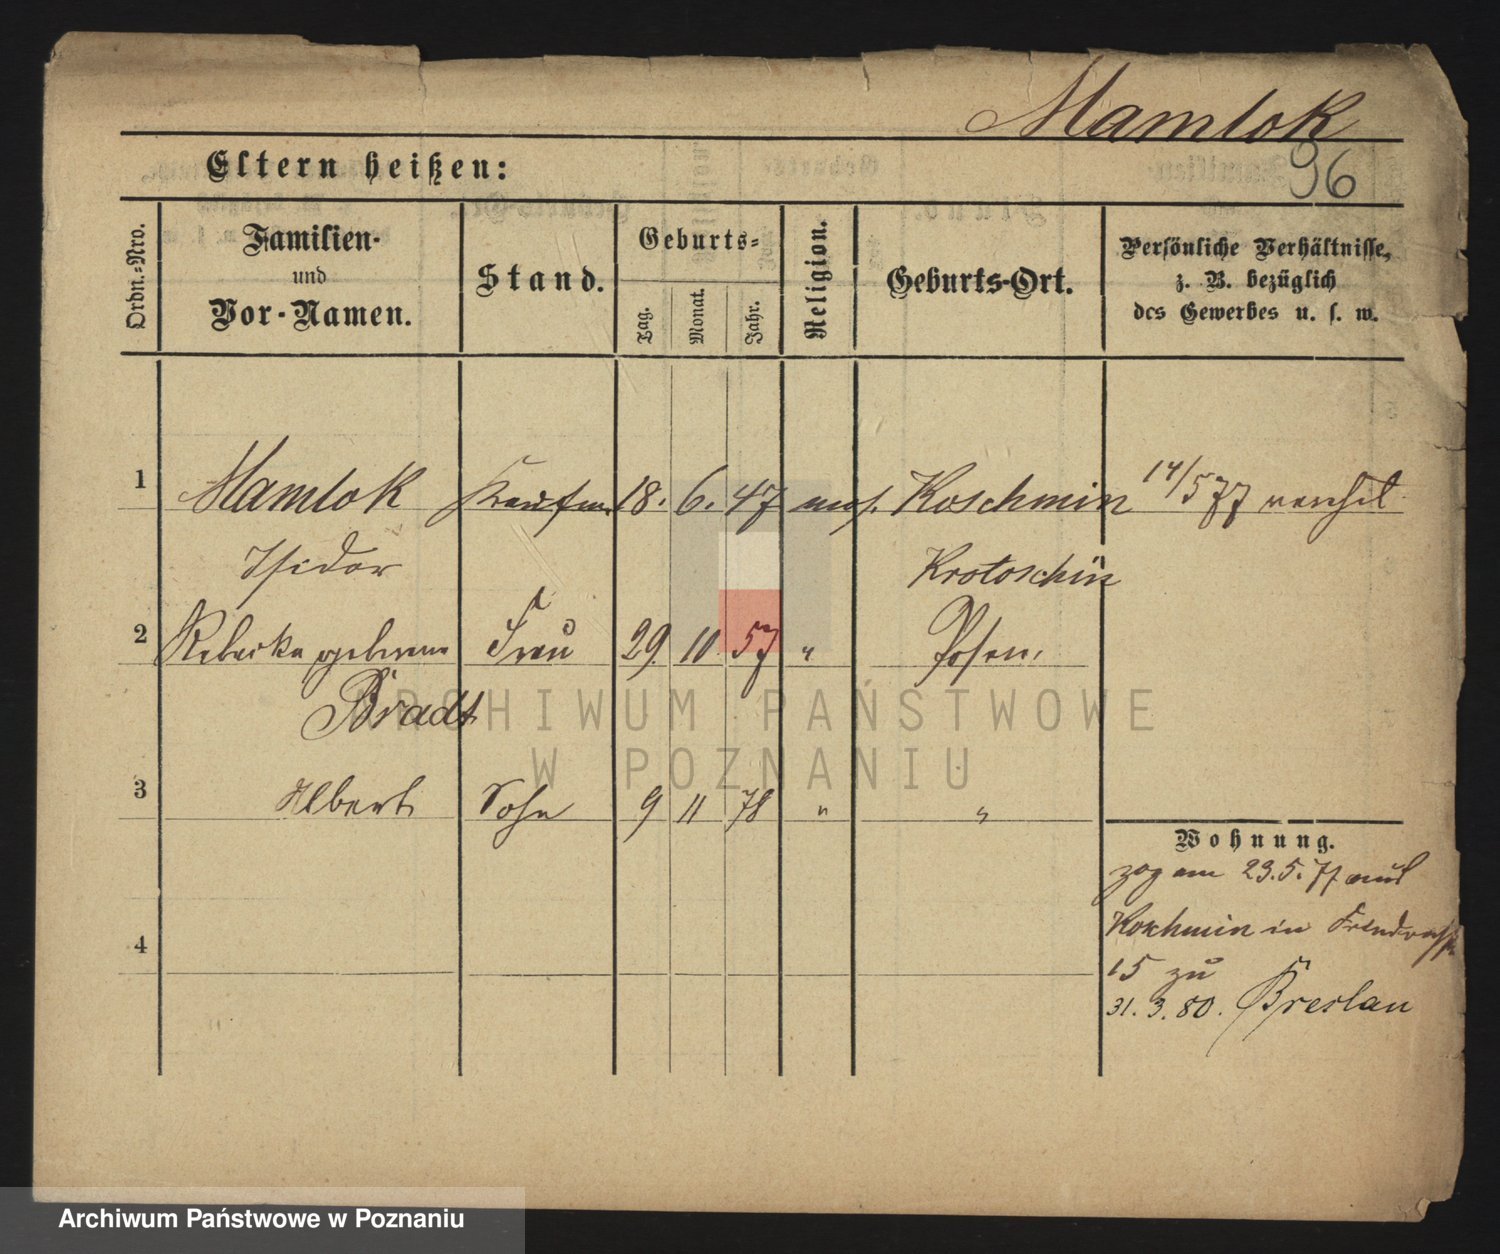 Mamlok
96
Eltern heißen:
Ordn.-Nro.
Familien-
und
Vor-Namen.
Stand.
Geburts-
Tag.
Monat.
Jahr.
Religion.
Geburts-Ort.
Persönliche Verhältnisse,
z. B. bezüglich
des Gewerbes u. s. w.
1 Mamlok Kaufm. 18. 6. 47 mos. Koschmin 14/5 77 verehel
Isidor Krotoschin
2 Rebecka geborene Frau 29. 10. 57 " Posen.
Bradt
3 Albert Sohn 9 11 78 " "
4
Wohnung.
zog am 23.5.77 aus
Koschmin in
15 zu
31. 3. 80. Breslau
ARCHIWUM PAŃSTWOWE
W POZNANIU
Archiwum Państwowe w Poznaniu